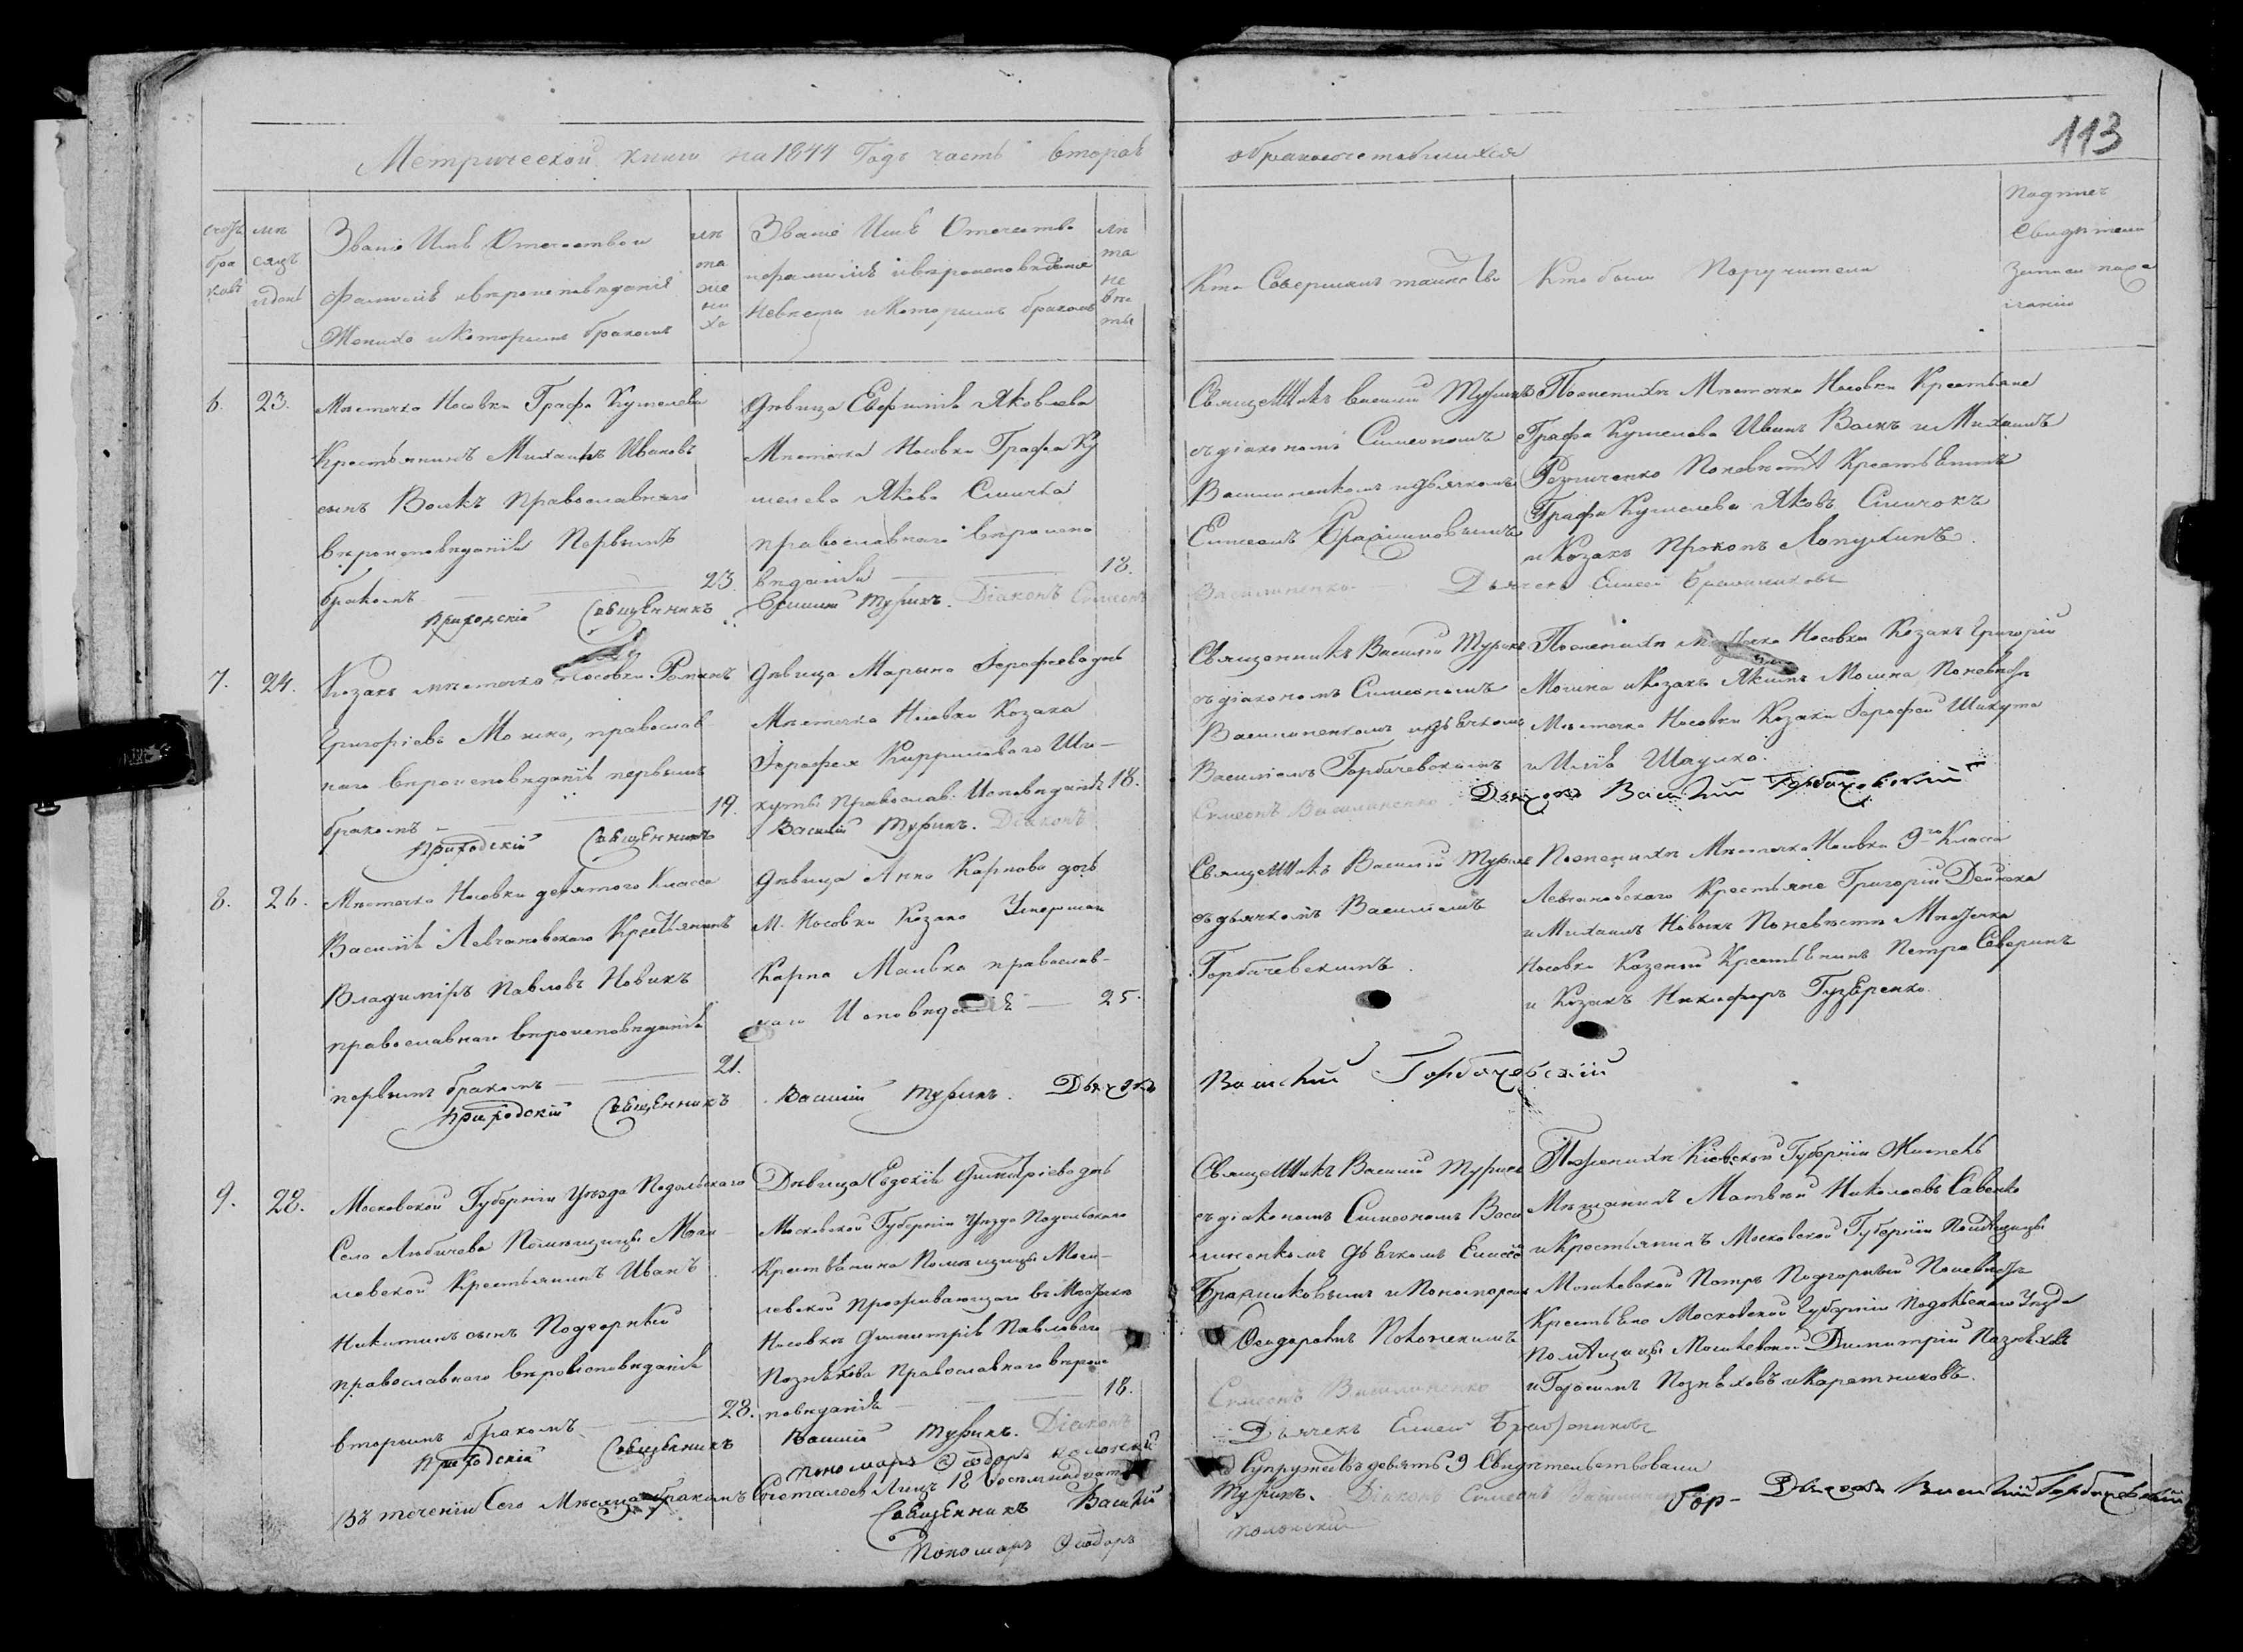 113
Метрической книги на 1844 Годъ часть вторая
о бракосочетавшихся
счетъ браковъ
мѣсяцъ и день
Званіе Имя Отчество и
фамилія и вѣроисповѣданіе
Жениха и которымъ бракомъ
лѣта жениха
Званіе Имя Отчество
и фамилія и вѣроисповѣданіе
Невѣсты и которымъ бракомъ
лѣта невѣсты
Кто Совершилъ таинство
Кто были Поручители
6.
23.
Мѣстечка Носовки Графа Кушелева
Крестьянинъ Михаилъ Ивановъ
сынъ Волкъ православнаго
вѣроисповѣданія Первымъ
бракомъ
23
Дѣвица Евфимія Яковлева
Мѣстечка Носовки Графа Ку
шелева Якова Смичка
православнаго вѣроиспо
вѣданія
18.
Священникъ Василій Туринъ
съ діакономъ Симеономъ
Василиненкомъ и дьячкомъ
По женихѣ Мѣстечка Носовки Крестьяне
Графа Кушелева Иванъ Волкъ и Михаилъ
Резниченко По невѣстѣ Крестьянинъ
Графа Кушелева Яковъ Смичокъ
и Козакъ Прокопъ Лопухинъ.
Приходскій Священникъ Василій Туринъ. Діаконъ Симеонъ
Василиненко Дьячекъ Елисей
7.
24.
Козакъ мѣстечка Носовки Романъ
Григоріевъ Мошна, православ
наго вѣроисповѣданія первымъ
бракомъ
19.
Дѣвица Марына Іерофеева дочь
Мѣстечка Носовки Козака
Іерофея Кирилова Ши-
куты православ. Исповѣданія
18.
Священникъ Василій Туринъ
съ діакономъ Симеономъ
Василиненкомъ и дьячкомъ
Василіемъ Горбачевскимъ
По женихѣ Мѣстечка Носовки Козакъ Григорій
Мошна и Козакъ Якимъ Мошна По невѣстѣ
Мѣстечка Носовки Козаки Іерофей Шикута
и Илія Шаулко.
Приходскій Священникъ Василій Туринъ. Діаконъ
Симеонъ Василиненко. Дьячекъ Василій Горбачевскій
8.
26.
Мѣстечка Носовки девятого Класса
Василія Левчановскаго Крестьянинъ
Владиміръ Павловъ Новикъ
православнаго вѣроисповѣданія
первымъ бракомъ
21.
Дѣвица Анна Карпова дочь
М. Носовки Козака Умершаго
Карпа Малька православ-
наго Исповѣданія
25.
Священникъ Василій Туринъ
съ дьячкомъ Василіемъ
Горбачевскимъ.
По женихѣ Мѣстечка Носовки 9го Класса
Левчановскаго Крестьяне Григорій Дейнека
и Михаилъ Новикъ По невѣстѣ Мѣстечка
Носовки Казеной Крестьянинъ Петро Северинъ
и Козакъ Никифоръ Гузѣренко.
Приходскій Священникъ Василій Туринъ. Дьячекъ
Василій Горбачевскій
9.
28.
Московской Губерніи Уѣзда Подольскаго
Села Любичева Помѣщицы Моги-
левской Крестьянинъ Иванъ
Никитинъ сынъ Подгорный
православнаго вѣроисповѣданія
вторымъ бракомъ
28.
Дѣвица Евдокія Димитріева дочь
Московской Губерніи Уѣзда Подольскаго
Крестьянина Помѣщицы Моги-
левской проживающаго въ Мѣстечкѣ
Носовкѣ Димитрія Павлова
Познякова Православнаго вѣроис
повѣданія
18.
Священникъ Василій Туринъ
съ діакономъ Симеономъ Васи
линенкомъ дьячкомъ Елисеемъ
и Пономаремъ
Ѳеодоромъ Полонскимъ
По женихѣ Кіевской Губерніи Житель
Мѣщанинъ Матвѣй Николаевъ Савенко
и Крестьянинъ Московской Губерніи Помѣщицы
Могилевской Петръ Подгорный По невѣстѣ
Крестьяне Московской Губерніи Подольскаго Уѣзда
Помѣщицы Могилевской Димитрій Позняковъ
и Герасимъ Позняковъ и Каретниковъ.
Приходскій Священникъ Василій Туринъ. Діаконъ
Симеонъ Василиненко
Дьячекъ Елисей
Пономарь Ѳеодоръ Полонскій
Въ теченіи Сего Мѣсяца бракомъ Сочеталось Лицъ 18 Восемнадцать
Супружествъ девять 9 Свидѣтельствовали
Священникъ Василій
Туринъ. Діаконъ Симеонъ
Гор- Дьячекъ Василій Горбачевскій
Пономарь Ѳеодоръ
Полонскій